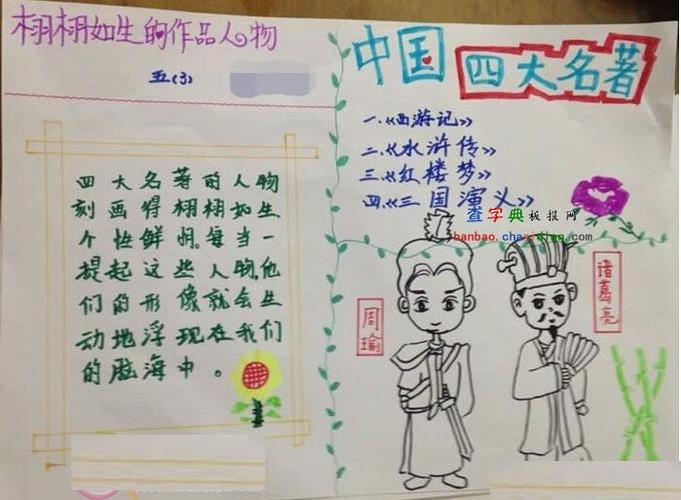 栩栩如生的作品人物
五(3)
四大名著的人物
刻画得栩栩如生
个性鲜明。每当一
提起这些人物,他
们的形像就会生
动地浮现在我们
的脑海中。
中国四大名著
一.《西游记》
二.《水浒传》
三.《红楼梦》
四.《三国演义》
查字典板报网
banbao.chazidian.com
周瑜
诸葛亮